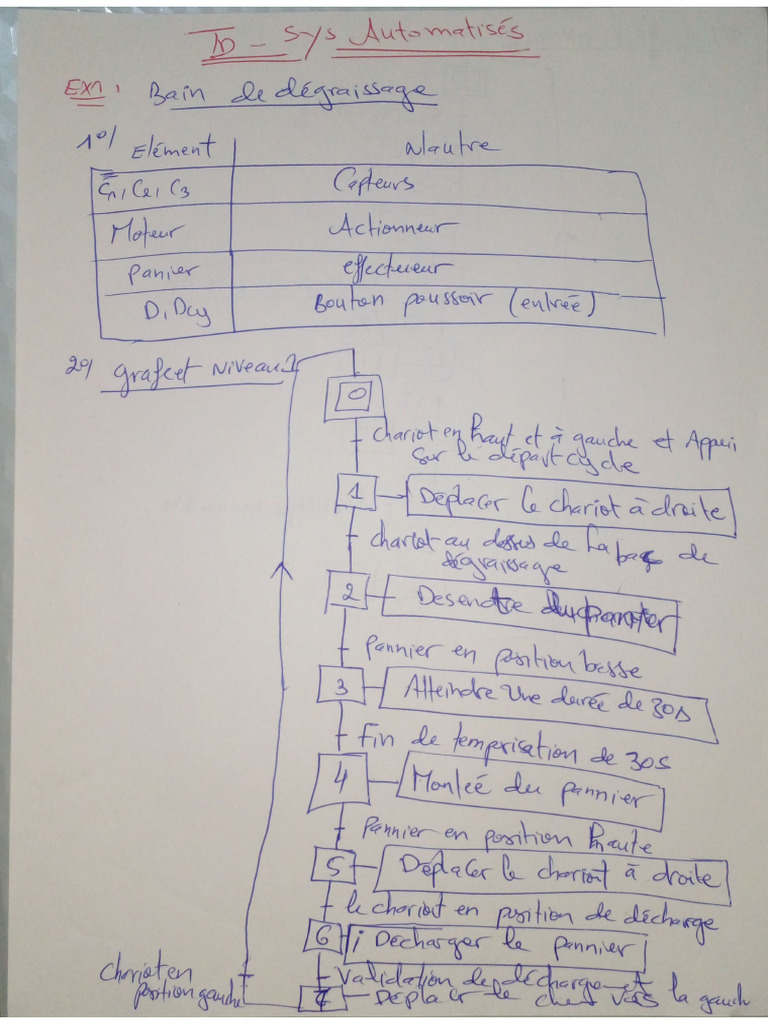 TD - Sys Automatisés
EX1, Bain de dégraissage
1°/ Elément Nautre
C1, C2, C3 Capteurs
Moteur Actionneur
Panier effectueur
D, Dcy Bouton poussoir (entrée)
2°/ Grafcet Niveau 1
0
chariot en haut et à gauche et Appui
sur le départ cycle
1 Déplacer le chariot à droite
chariot au dessus de la bac de
dégraissage
2 Desendre du panier
Pannier en position basse
3 Atteindre une durée de 30s
Fin de temprisation de 30s
4 Montée du pannier
Pannier en position haute
5 Déplacer le chariot à droite
le chariot en position de décharge
6 Décharger le pannier
Validation de décharge et
Chariot en
position gauche
7 Déplacer le vers la gauch